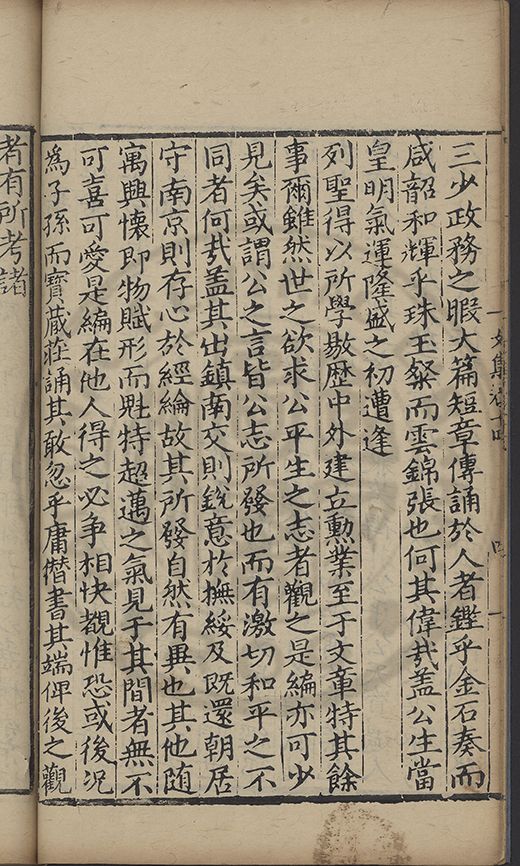 三少政務之暇大篇短章傳誦於人者鏗乎金石奏而
咸韶和輝乎珠玉粲而雲錦張也何其偉㢤盖公生當
皇明氣運隆盛之初遭逢
列聖得以所學敭歷中外建立勲業至于文章特其餘
事爾雖然世之欲求公平生之志者觀之是編亦可少
見矣或謂公之言皆公志所發也而有激切和平之不
同者何㢤盖其出鎮南交則銳意於撫綏及既還朝居
守南京則存心於經綸故其所發自然有異也其他随
寓興懷即物賦形而魁特超邁之氣見于其間者無不
可喜可愛是編在他人得之必争相快覩惟恐或後况
為子孫而寳蔵荘誦其敢忽乎庸僣書其端俾後之觀
者有所考諸